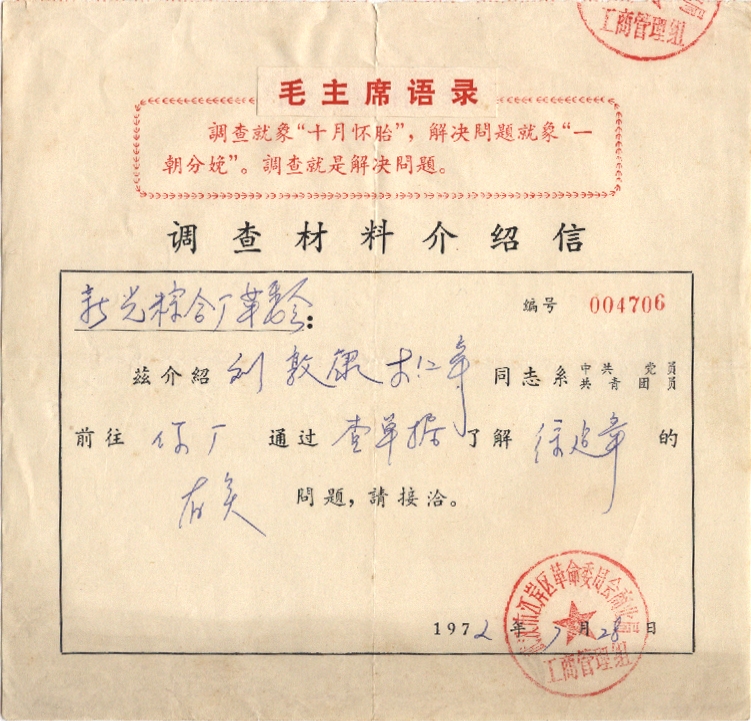 工商管理组
毛主席语录
調查就象“十月怀胎”，解决問題就象“一
朝分娩”。調查就是解决問題。
调查材料介绍信
新光棕合厂革委会：
编号 004706
茲介紹 刘敦 同志系 中共党员 共青团员
前往 你厂 通过 查单据 了解 徐 章 的
有关 問題，請接洽。
江岸区革命委员会商业
1972年 月28日
工商管理组